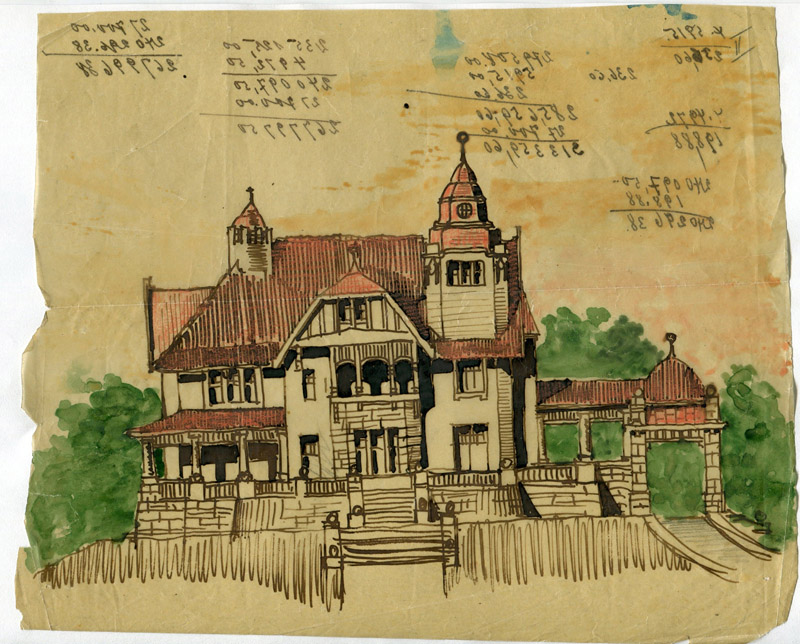 27 700.00
240 296.38
267 996 38
235 125,00
4 972,50
240 097,50
27 700.00
267 797 50
279 508.00
5915.00
236.60
285 659,60
27 700.00
313 359,60
236,60
4.5915.
23660
4.4972
19888
240 097,50-
198.88
240 296 38.